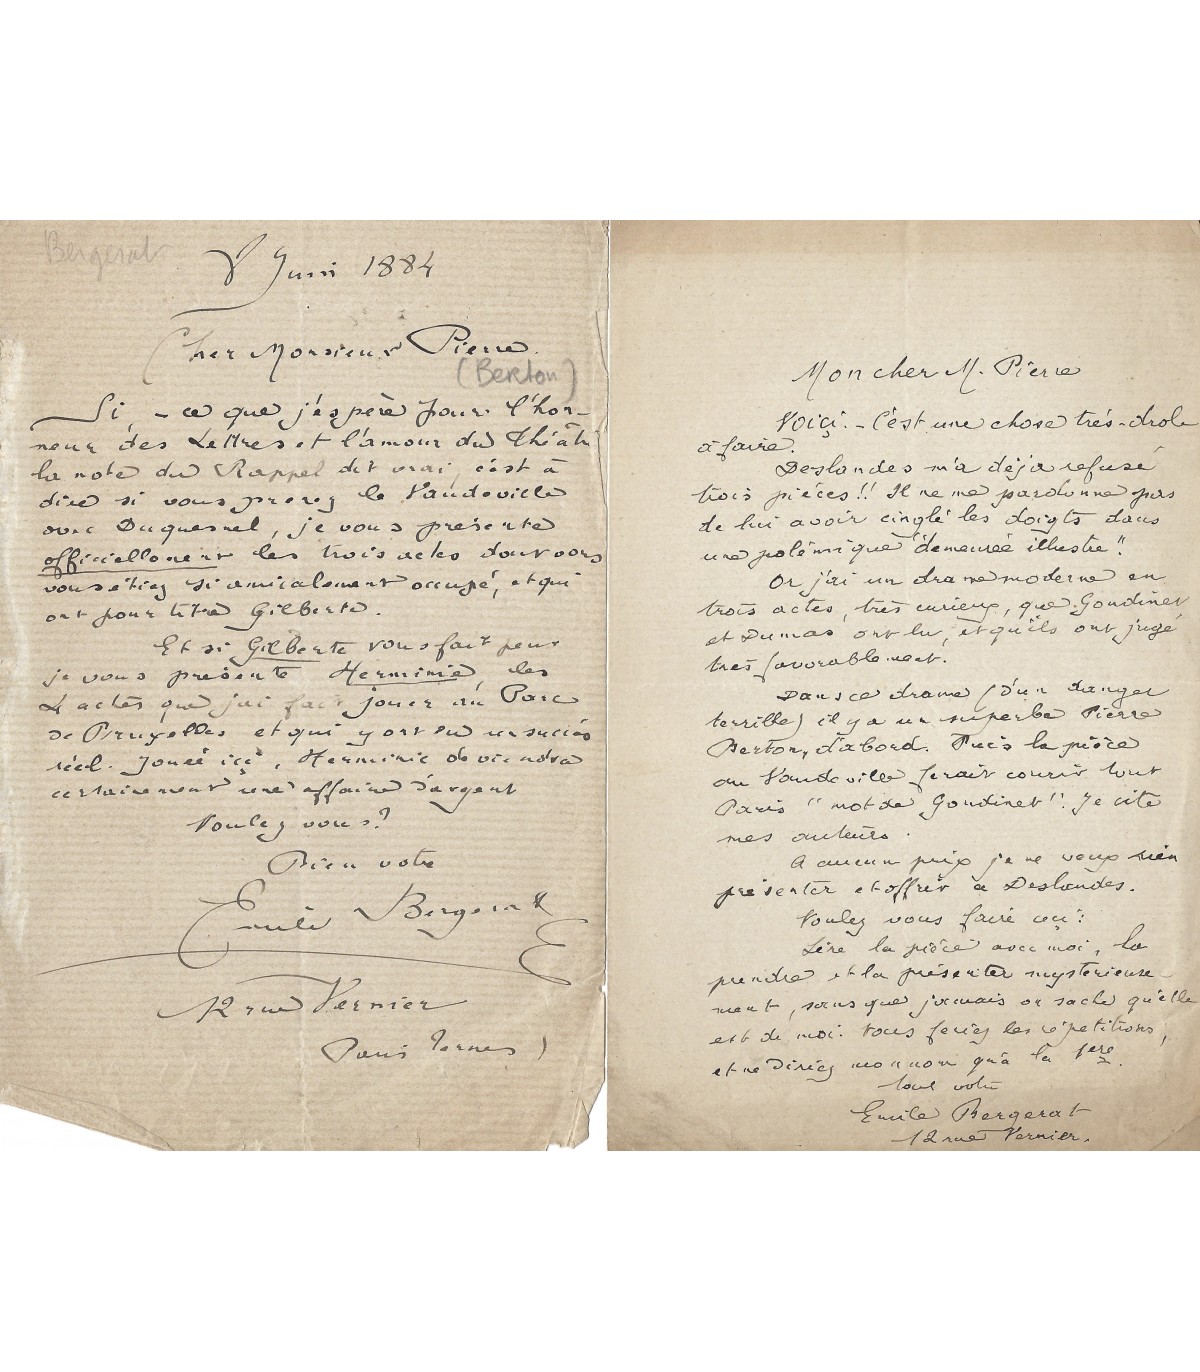 Bergerat
8 Juin 1884
Cher Monsieur Pierre.
(Berton)
Si, - ce que j'espère pour l'hon-
neur des Lettres et l'amour du Théâtre
la note du Rappel dit vrai, c'est à
dire si vous prenez le Vaudeville
avec Duquesnel, je vous présente
officiellement les trois actes dont vous
vous étiez si amicalement occupé, et qui
ont pour titre Gilberte.
Et si Gilberte vous fait peur
je vous présente Herminie, les
4 actes que j'ai fait jouer au Parc
de Bruxelles et qui y ont eu un succès
réel. Jouée içi, Herminie deviendra
certainement une affaire d'argent
Voulez vous?
Bien votre
Emile Bergerat
12 rue Vernier
Paris Ternes
Mon cher M. Pierre
Voiçi. - C'est une chose très-drole
à faire.
Deslandes m'a déja refusé
trois pièces!! Il ne me pardonne pas
de lui avoir cinglé les doigts dans
une polémique "demeurée illustre".
Or j'ai un drame moderne en
trois actes, très curieux, que Gondinet
et Dumas ont lu, et qu'ils ont jugé
très favorablement.
Dans ce drame (d'un danger
terrible) il y a un superbe Pierre
Berton, d'abord. Puis la pièce
au Vaudeville ferait courir tout
Paris "mot de Gondinet". Je cite
mes auteurs.
A aucun prix je ne veux rien
présenter et offrir à Deslandes.
Voulez vous faire ceçi:
Lire la pièce avec moi, la
prendre et la présenter mystérieuse
ment, sans que jamais on sache qu'elle
est de moi. Vous feriez les répétitions,
et ne diriez mon nom qu'à la 1ère.
tout votre
Emile Bergerat
12 rue Vernier.